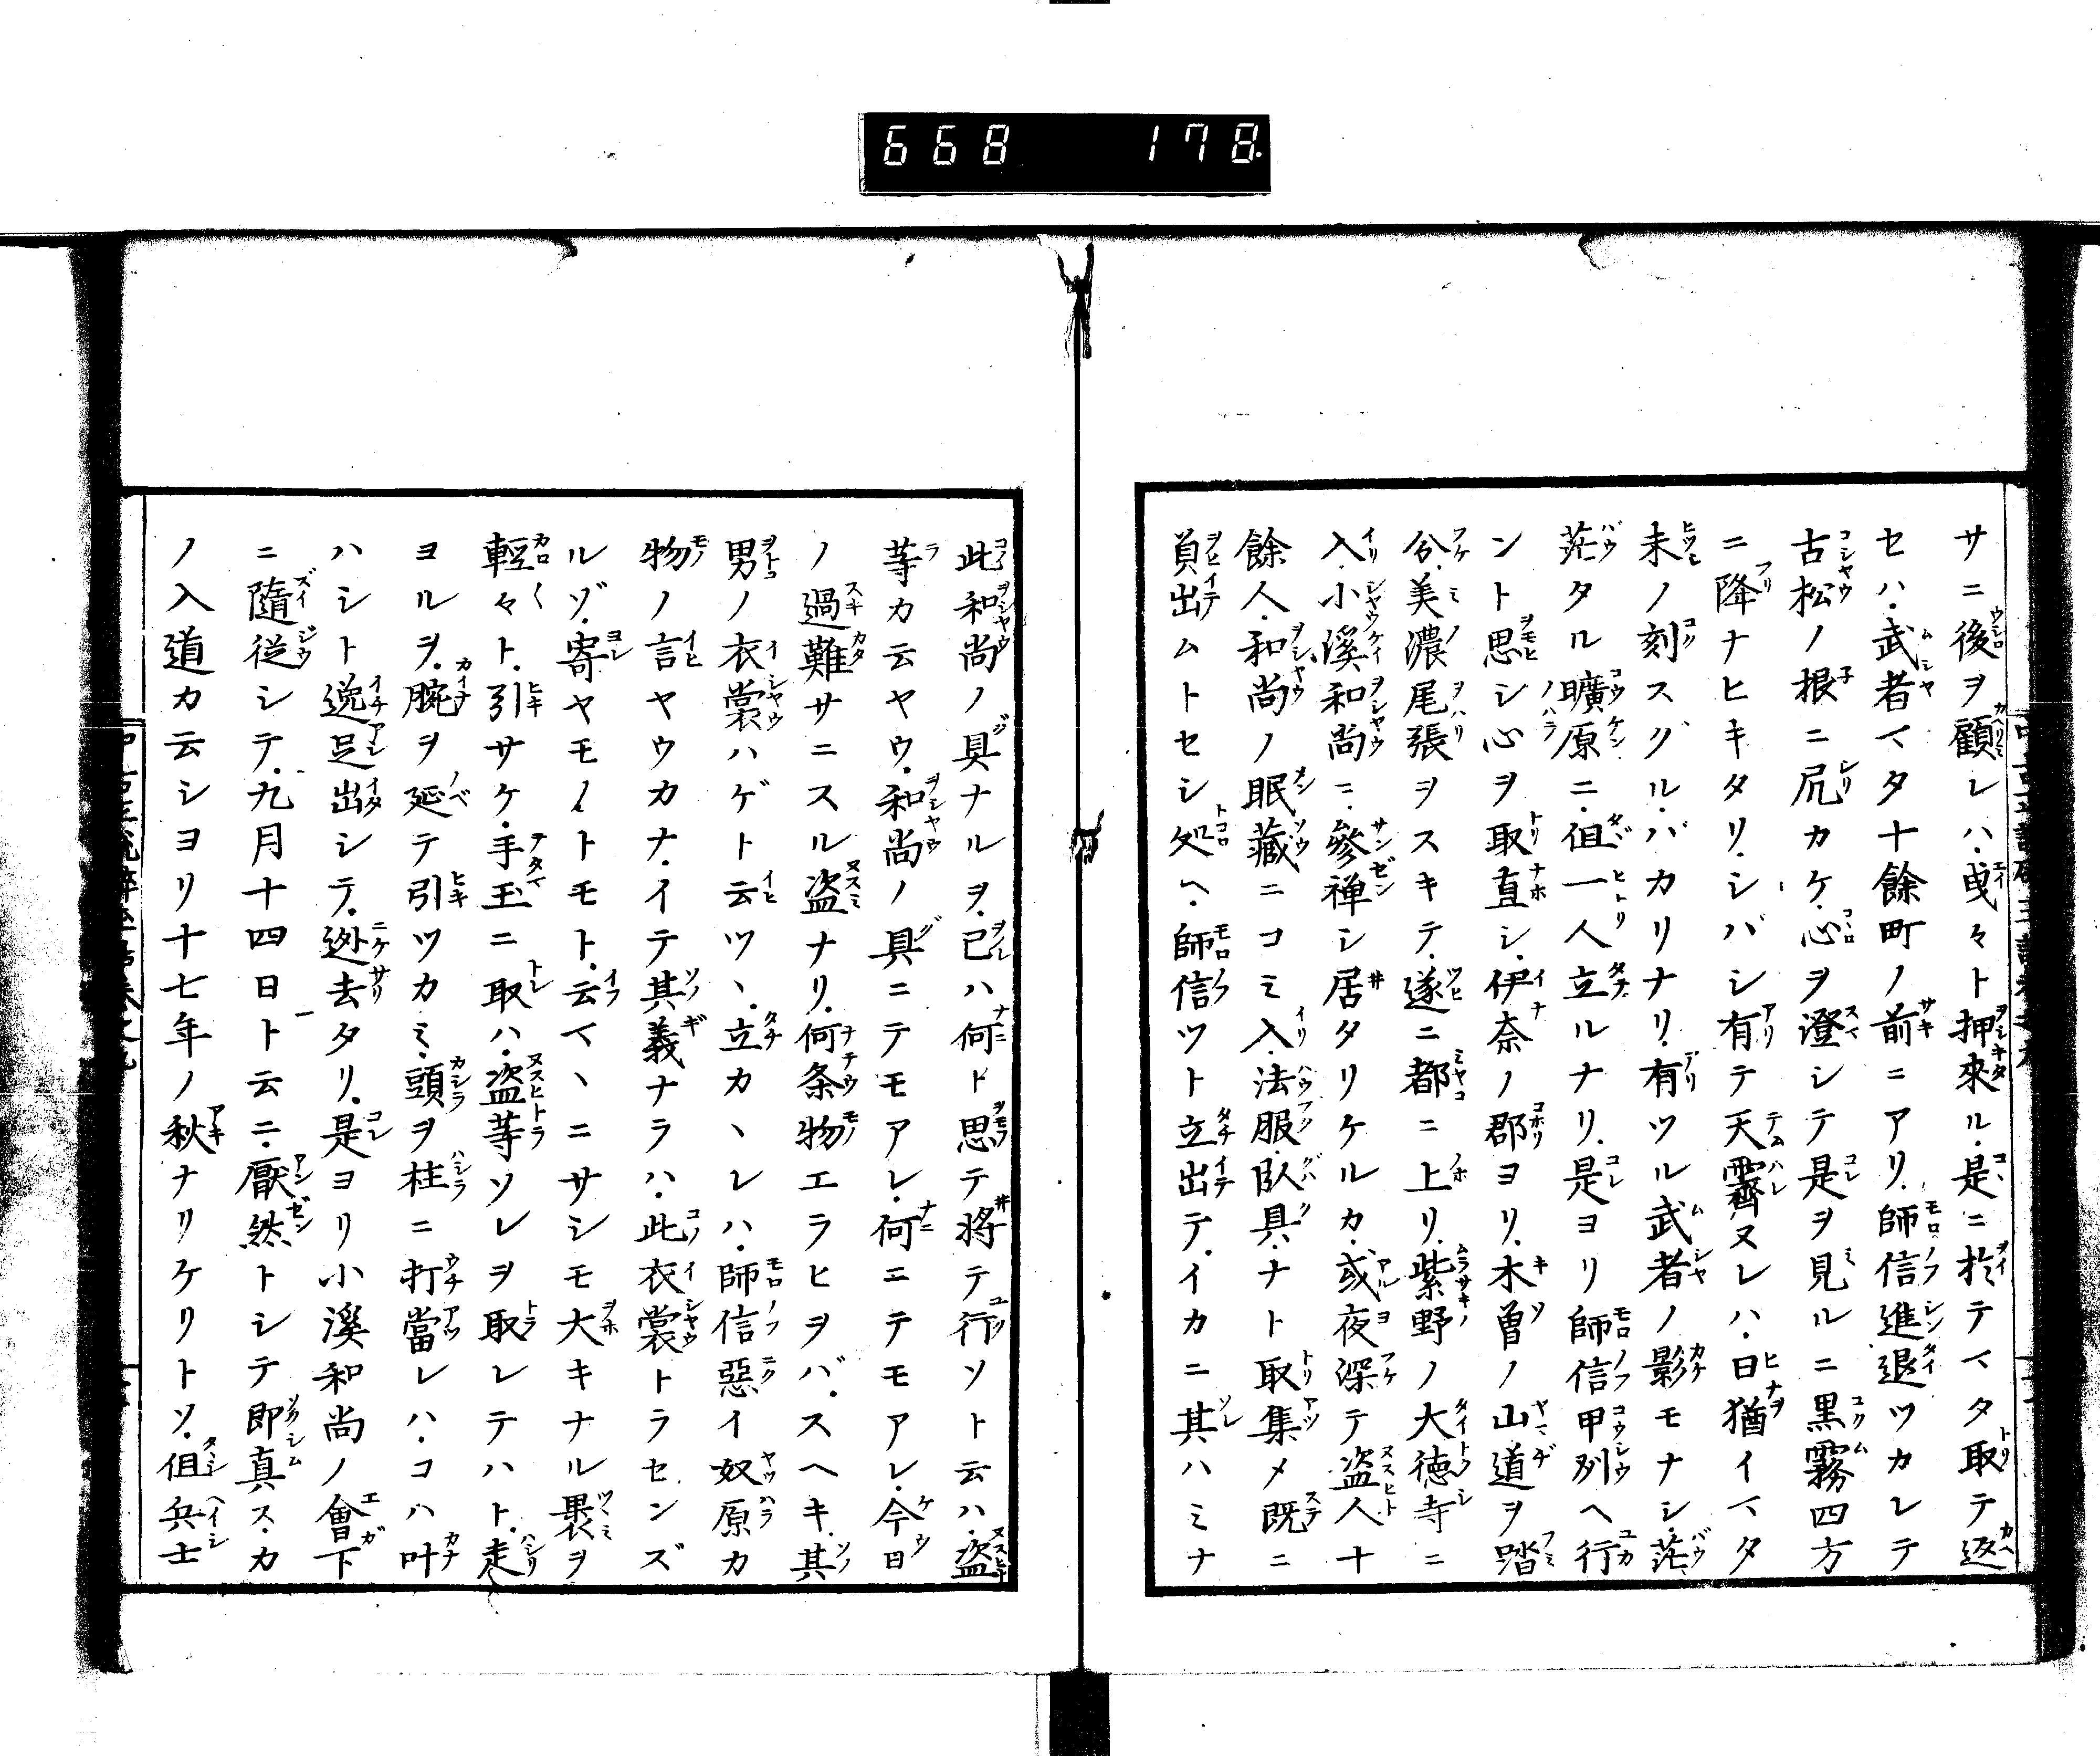 668 178
サニ後ヲ顧レハ曳々ト押來ル是ニ於テマタ取テ返
セハ武者マタ十餘町ノ前ニアリ師信進退ツカレテ
古松ノ根ニ尻カケ心ヲ澄シテ是ヲ見ルニ黒霧四方
ニ降ナヒキタリシバシ有テ天霽ヌレハ日猶イマタ
未ノ刻スグルバカリナリ有ツル武者ノ影モナシ茫
茫タル曠原ニ伹一人立ルナリ是ヨリ師信甲州ヘ行
ント思シ心ヲ取直シ伊奈ノ郡ヨリ木曽ノ山道ヲ踏
分美濃尾張ヲスキテ遂ニ都ニ上リ紫野ノ大徳寺ニ
入小溪和尚ニ參禅シ居タリケルカ或夜深テ盗人十
餘人和尚ノ眠藏ニコミ入法服臥具ナト取集メ既ニ
負出ムトセシ処ヘ師信ツト立出テイカニ其ハミナ
此和尚ノ具ナルヲ己ハ何ト思テ將テ行ソト云ハ盗
等カ云ヤウ和尚ノ具ニテモアレ何ニテモアレ今日
ノ過難サニスル盗ナリ何条物エラヒヲバスヘキ其
男ノ衣裳ハゲト云ツヽ立カヽレハ師信惡イ奴原カ
物ノ言ヤウカナイテ其義ナラハ此衣裳トラセンズ
ルゾ寄ヤモノトモト云マヽニサシモ大キナル裹ヲ
輕々ト引サケ手玉ニ取ハ盗等ソレヲ取レテハト走
ヨルヲ腕ヲ延テ引ツカミ頭ヲ柱ニ打當レハコハ叶
ハシト逸足出シテ迯去タリ是ヨリ小溪和尚ノ會下
ニ隨従シテ九月十四日ト云ニ厭然トシテ即真スカ
ノ入道カ云シヨリ十七年ノ秋ナリケリトソ伹兵士